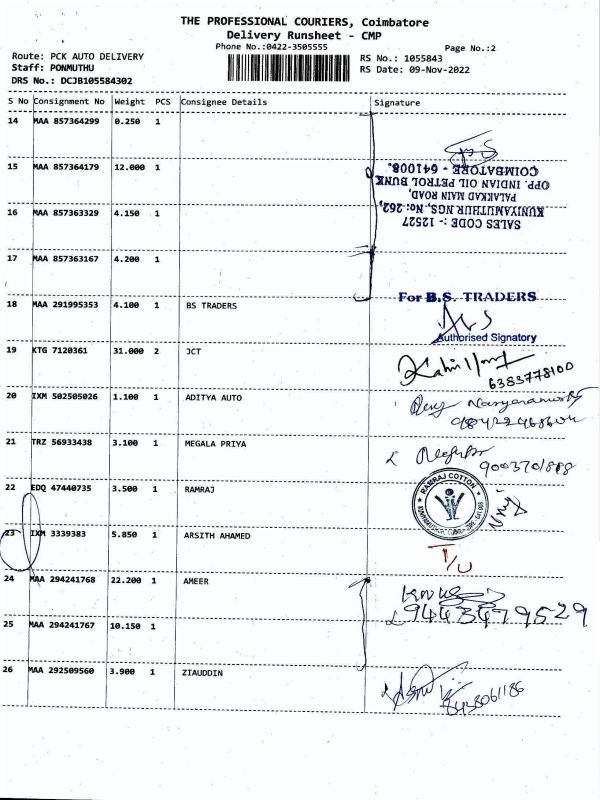 THE PROFESSIONAL COURIERS, Coimbatore
Delivery Runsheet - CMP
Phone No.:0422-3505555
Page No.:2
Route: PCK AUTO DELIVERY
Staff: PONMUTHU
DRS No.: DCJB105584302
RS No.: 1055843
RS Date: 09-Nov-2022
S No Consignment No Weight PCS Consignee Details Signature
14 MAA 857364299 0.250 1
15 MAA 857364179 12.000 1
16 MAA 857363329 4.150 1
SALES CODE :- 12527
KUNIYAMUTHUR NGS, No: 262,
PALAKKAD MAIN ROAD,
OPP. INDIAN OIL PETROL BUNK
COIMBATORE - 641008.
17 MAA 857363167 4.200 1
18 MAA 291995353 4.100 1 BS TRADERS
For B.S. TRADERS
Authorised Signatory
19 KTG 7120361 31.000 2 JCT
6383778100
20 IXM 502505026 1.100 1 ADITYA AUTO
21 TRZ 56933438 3.100 1 MEGALA PRIYA
9003701888
22 EDQ 47440735 3.500 1 RAMRAJ
RAMRAJ COTTON
23 IXM 3339383 5.850 1 ARSITH AHAMED
T/U
24 MAA 294241768 22.200 1 AMEER
9443479529
25 MAA 294241767 10.150 1
26 MAA 292509560 3.900 1 ZIAUDDIN
8438061186